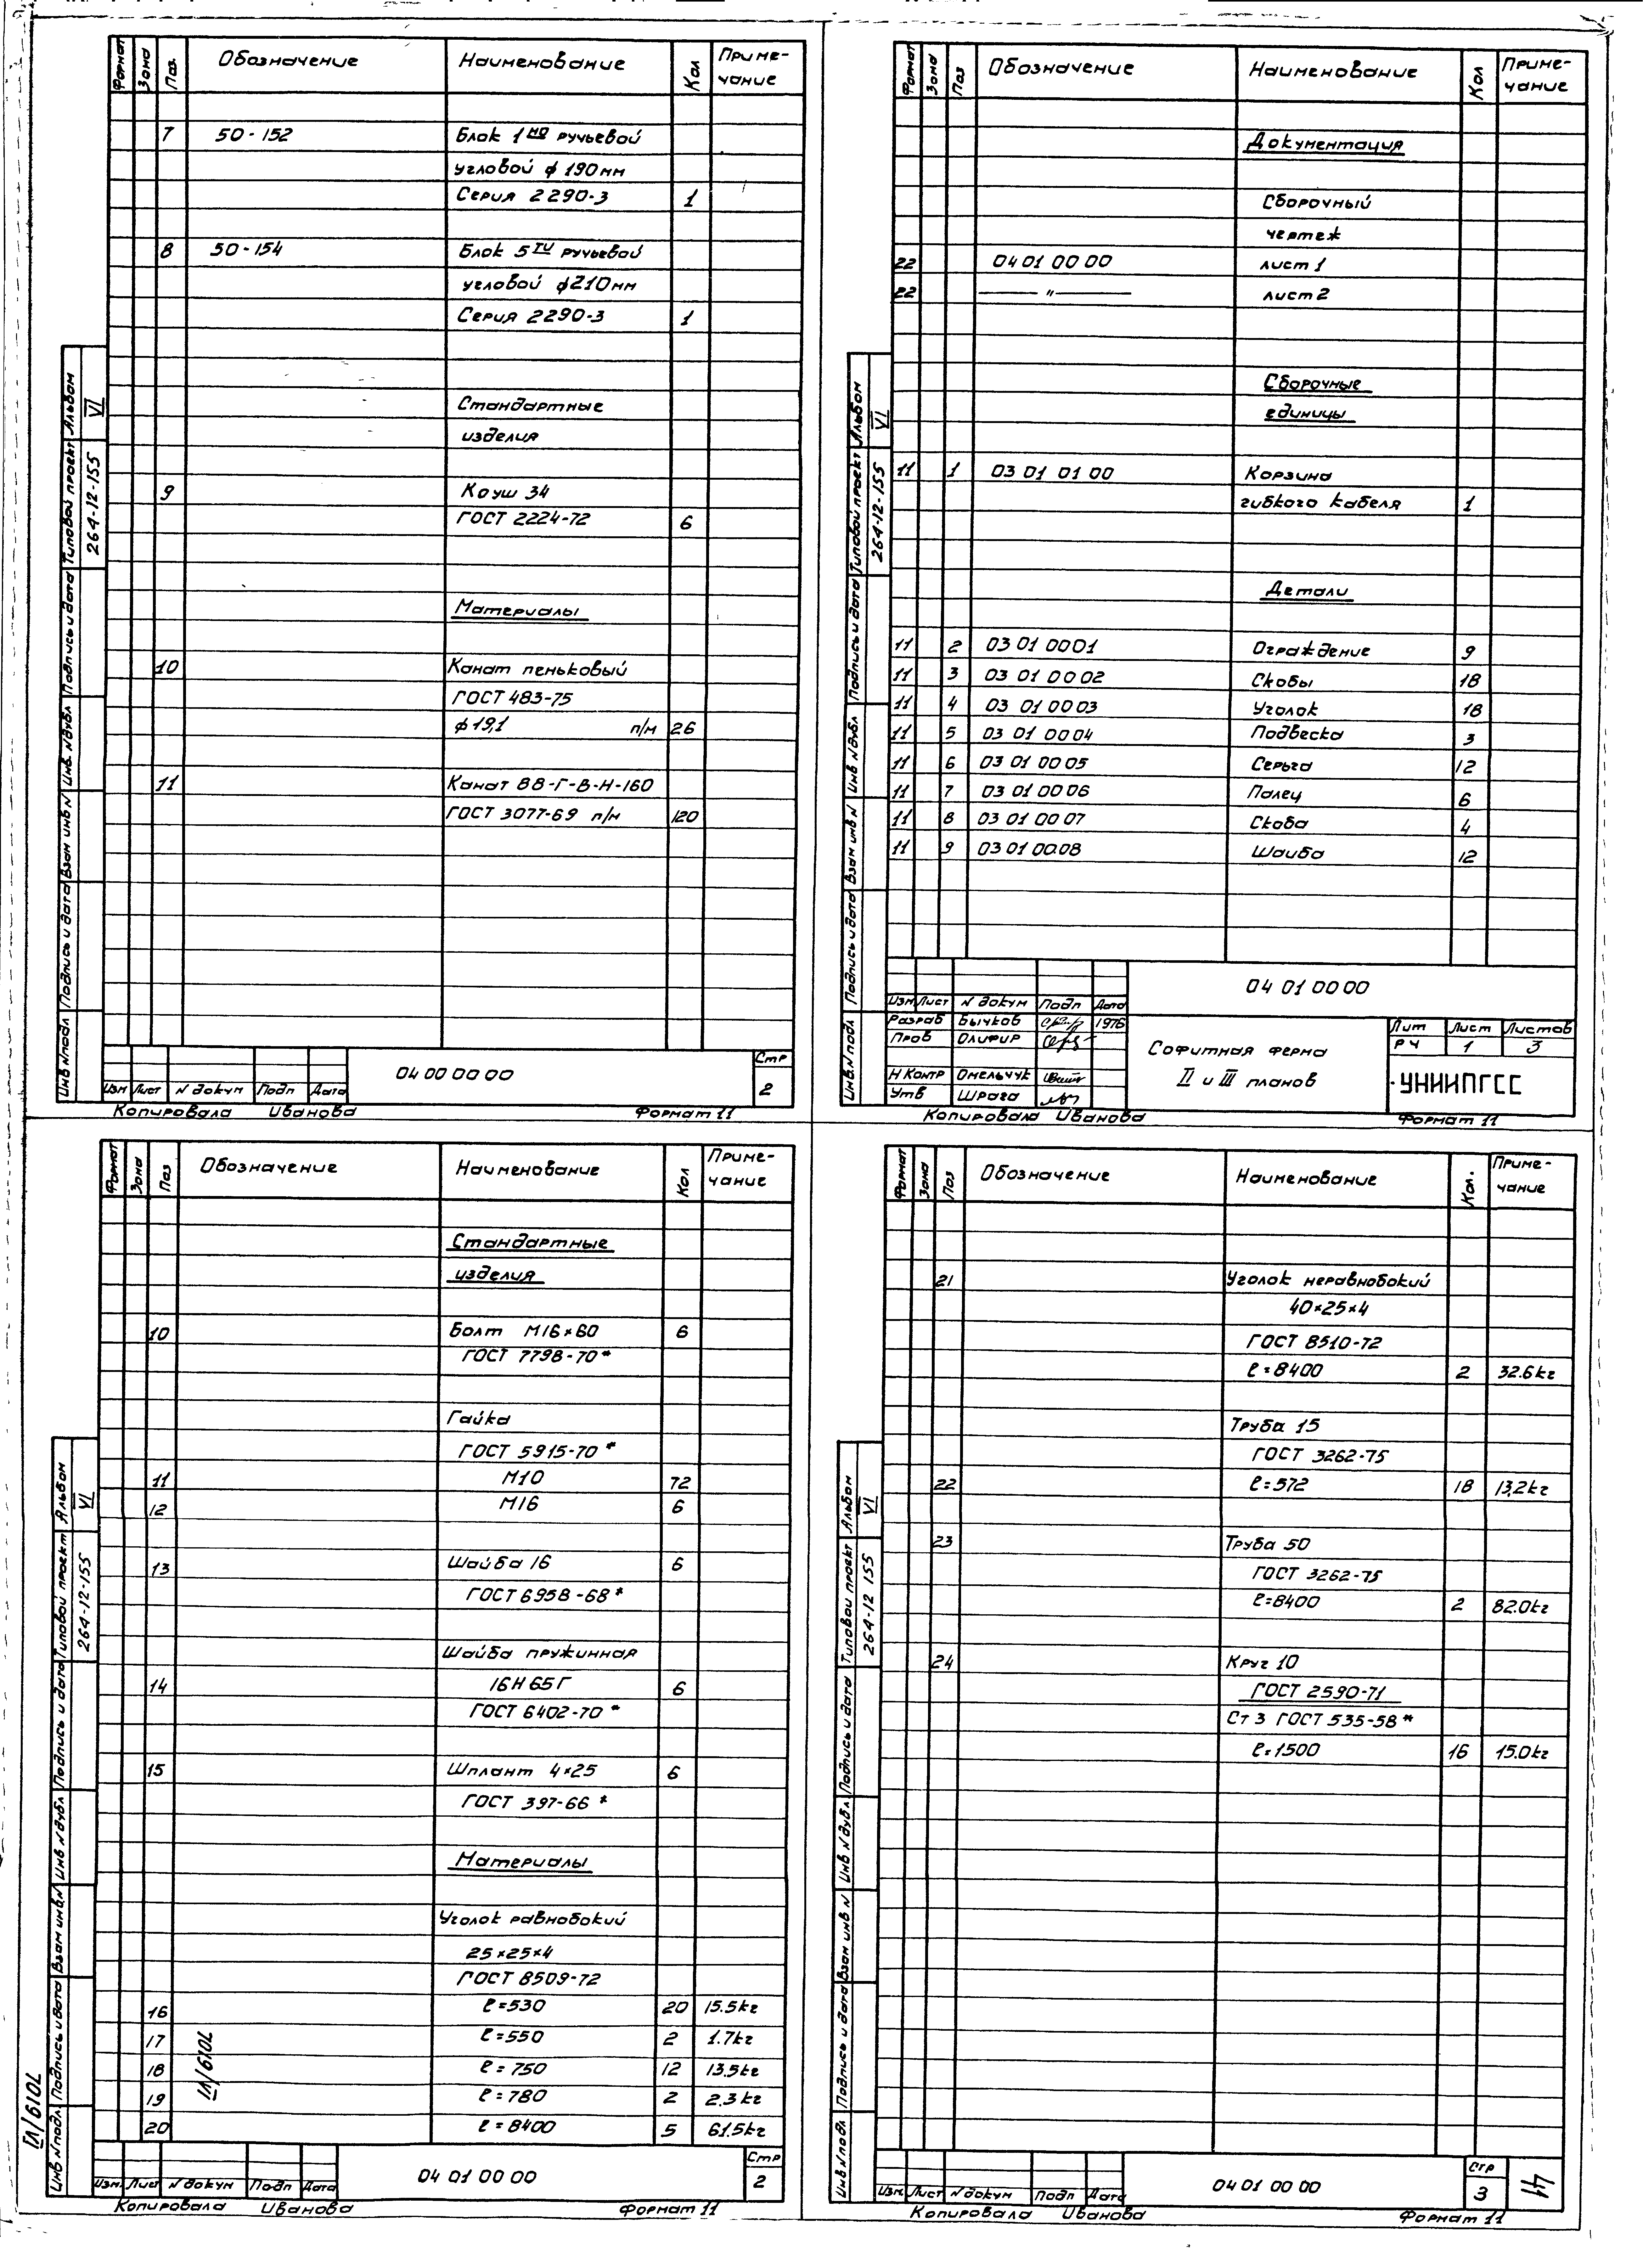 Формат Зона Поз. Обозначение Наименование Кол Приме-
чание
7 50-152 Блок 1но ручьевой
угловой ф 190мм
Серия 2290-3 1
8 50-154 Блок 5ти ручьевой
угловой ф210мм
Серия 2290-3 1
Стандартные
изделия
9 Коуш 34
ГОСТ 2224-72 6
Материалы
10 Канат пеньковый
ГОСТ 483-75
ф 19,1 п/м 26
11 Канат 88-Г-В-Н-160
ГОСТ 3077-69 п/м 120
Альбом VI
Типовой проект 264-12-155
Подпись и дата
Инв. N дубл
Взам инв N
Подпись и дата
Инв N подл
Изм Лист N докум Подп Дата
04 00 00 00
Стр
2
Копировала Иванова Формат 11
Формат Зона Поз Обозначение Наименование Кол Приме-
чание
Документация
Сборочный
чертеж
22 04 01 00 00 лист 1
22 — " — лист 2
Сборочные
единицы
11 1 03 01 01 00 Корзина
гибкого кабеля 1
Детали
11 2 03 01 00 01 Ограждение 9
11 3 03 01 00 02 Скобы 18
11 4 03 01 00 03 Уголок 18
11 5 03 01 00 04 Подвеска 3
11 6 03 01 00 05 Серьга 12
11 7 03 01 00 06 Палец 6
11 8 03 01 00 07 Скоба 4
11 9 03 01 00.08 Шайба 12
Альбом VI
Типовой проект 264-12-155
Подпись и дата
Инв N дубл
Взам инв N
Подпись и дата
Инв. N подл
04 01 00 00
Изм Лист N докум Подп Дата
Разраб Бычков 1976
Пров Олифир
Н Контр Омельчук
Утв Шрага
Софитная ферма
II и III планов
Лит Лист Листов
РЧ 1 3
УНИИПГСС
Копировала Иванова Формат 11
Формат Зона Поз Обозначение Наименование Кол Приме-
чание
Стандартные
изделия
10 Болт М16×60 6
ГОСТ 7798-70*
Гайка
ГОСТ 5915-70*
11 М10 72
12 М16 6
13 Шайба 16 6
ГОСТ 6958-68*
Шайба пружинная
14 16Н 65Г 6
ГОСТ 6402-70*
15 Шплинт 4×25 6
ГОСТ 397-66*
Материалы
Уголок равнобокий
25×25×4
ГОСТ 8509-72
16 ℓ=530 20 15.5кг
17 ℓ=550 2 1.7кг
18 ℓ=750 12 13.5кг
19 ℓ=780 2 2.3кг
20 ℓ=8400 5 61.5кг
7019/VI
7019/VI
Альбом VI
Типовой проект 264-12-155
Подпись и дата
Инв N дубл
Взам инв.N
Подпись и дата
Инв N подл.
Изм. Лист N докум Подп Дата
04 01 00 00
Стр
2
Копировала Иванова Формат 11
Формат Зона Поз Обозначение Наименование Кол. Приме-
чание
21 Уголок неравнобокий
40×25×4
ГОСТ 8510-72
ℓ=8400 2 32.6кг
Труба 15
ГОСТ 3262-75
22 ℓ=572 18 13,2кг
23 Труба 50
ГОСТ 3262-75
ℓ=8400 2 82.0кг
24 Круг 10
ГОСТ 2590-71
Ст 3 ГОСТ 535-58*
ℓ=1500 16 15.0кг
Альбом VI
Типовой проект 264-12 155
Подпись и дата
Инв N дубл
Взам инв N
Подпись и дата
Инв N подл
Изм. Лист N докум Подп Дата
04 01 00 00
Стр
3
Копировала Иванова Формат 11